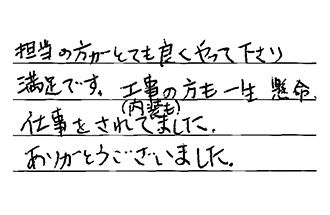 担当の方がとても良くやって下さり
満足です。工事の方も一生懸命、
(内装も)
仕事をされてました。
ありがとうございました。